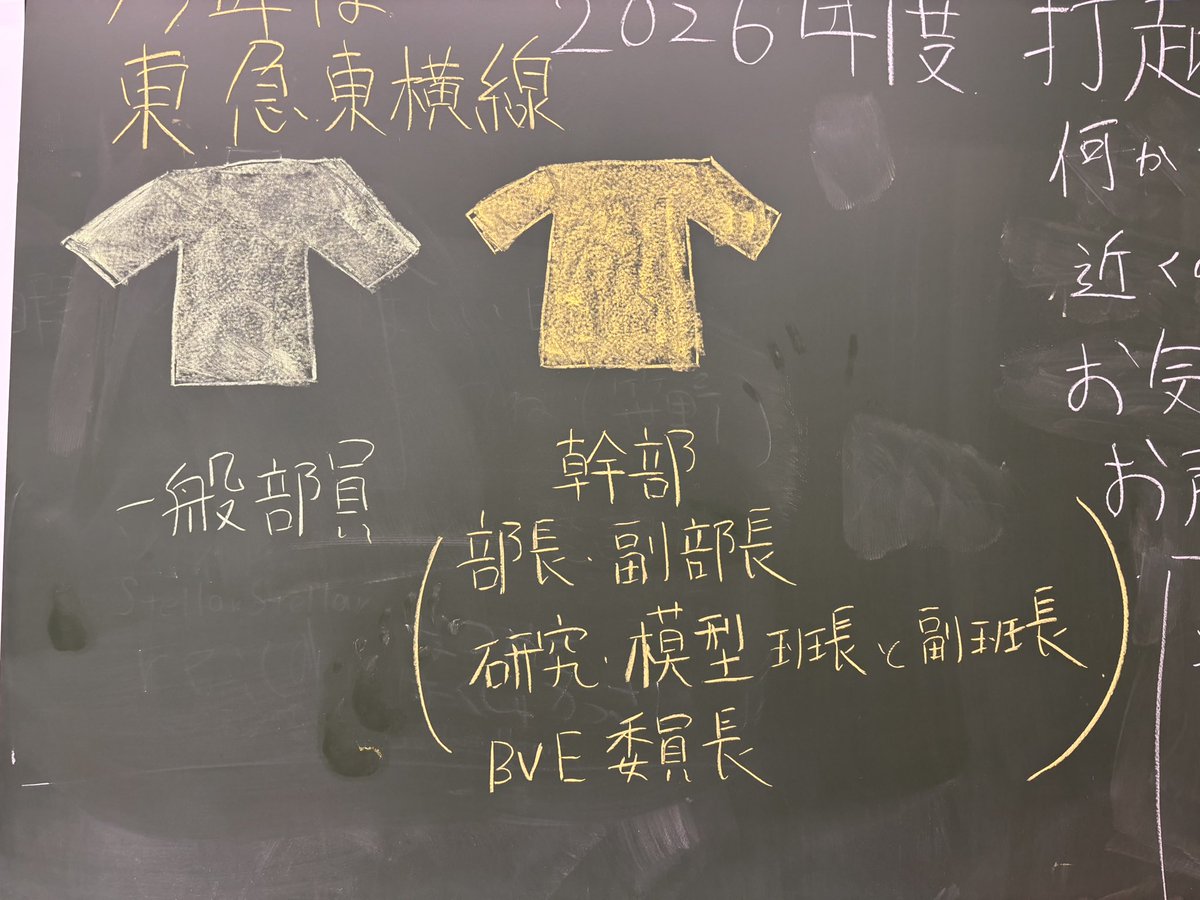 今年は
東急東横線
一般部員
幹部
部長・副部長
研究・模型 班長と副班長
BVE 委員長
2026年度 打超
何か
近くの
お気
お声
Stellar Stellar